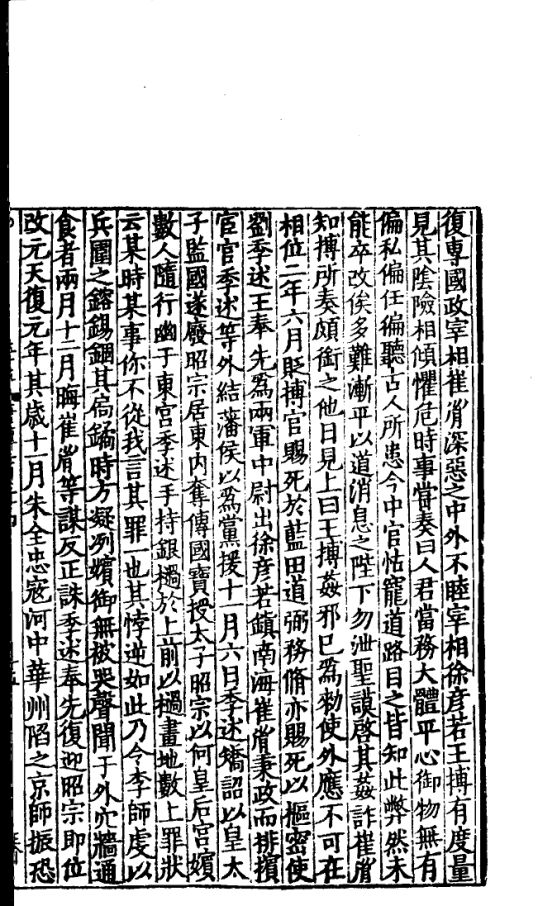 復專國政宰相崔胤深惡之中外不睦宰相徐彥若王摶有度量
見其陰險相傾懼危時事嘗奏曰人君當務大體平心御物無有
偏私偏任偏聽古人所患今中官怙寵道路目之皆知此弊然未
能卒改俟多難漸平以道消息之陛下勿泄聖謨啓其姦詐崔胤
知摶所奏頗銜之他日見上曰王摶姦邪已爲勑使外應不可在
相位二年六月貶摶官賜死於藍田道弼務脩亦賜死以樞密使
劉季述王奉先爲兩軍中尉出徐彥若鎮南海崔胤秉政而排擯
宦官季述等外結藩侯以爲黨援十一月六日季述矯詔以皇太
子監國遂廢昭宗居東內奪傳國寶授太子昭宗以何皇后宮嬪
數人隨行幽于東宮季述手持銀檛於上前以檛畫地數上罪狀
云某時某事你不從我言其罪一也其悖逆如此乃令李師虔以
兵圍之鎔錫錮其扃鐍時方凝冽嬪御無被哭聲聞于外穴牆通
食者兩月十二月晦崔胤等謀反正誅季述奉先復迎昭宗即位
改元天復元年其歲十一月朱全忠寇河中華州陷之京師振恐